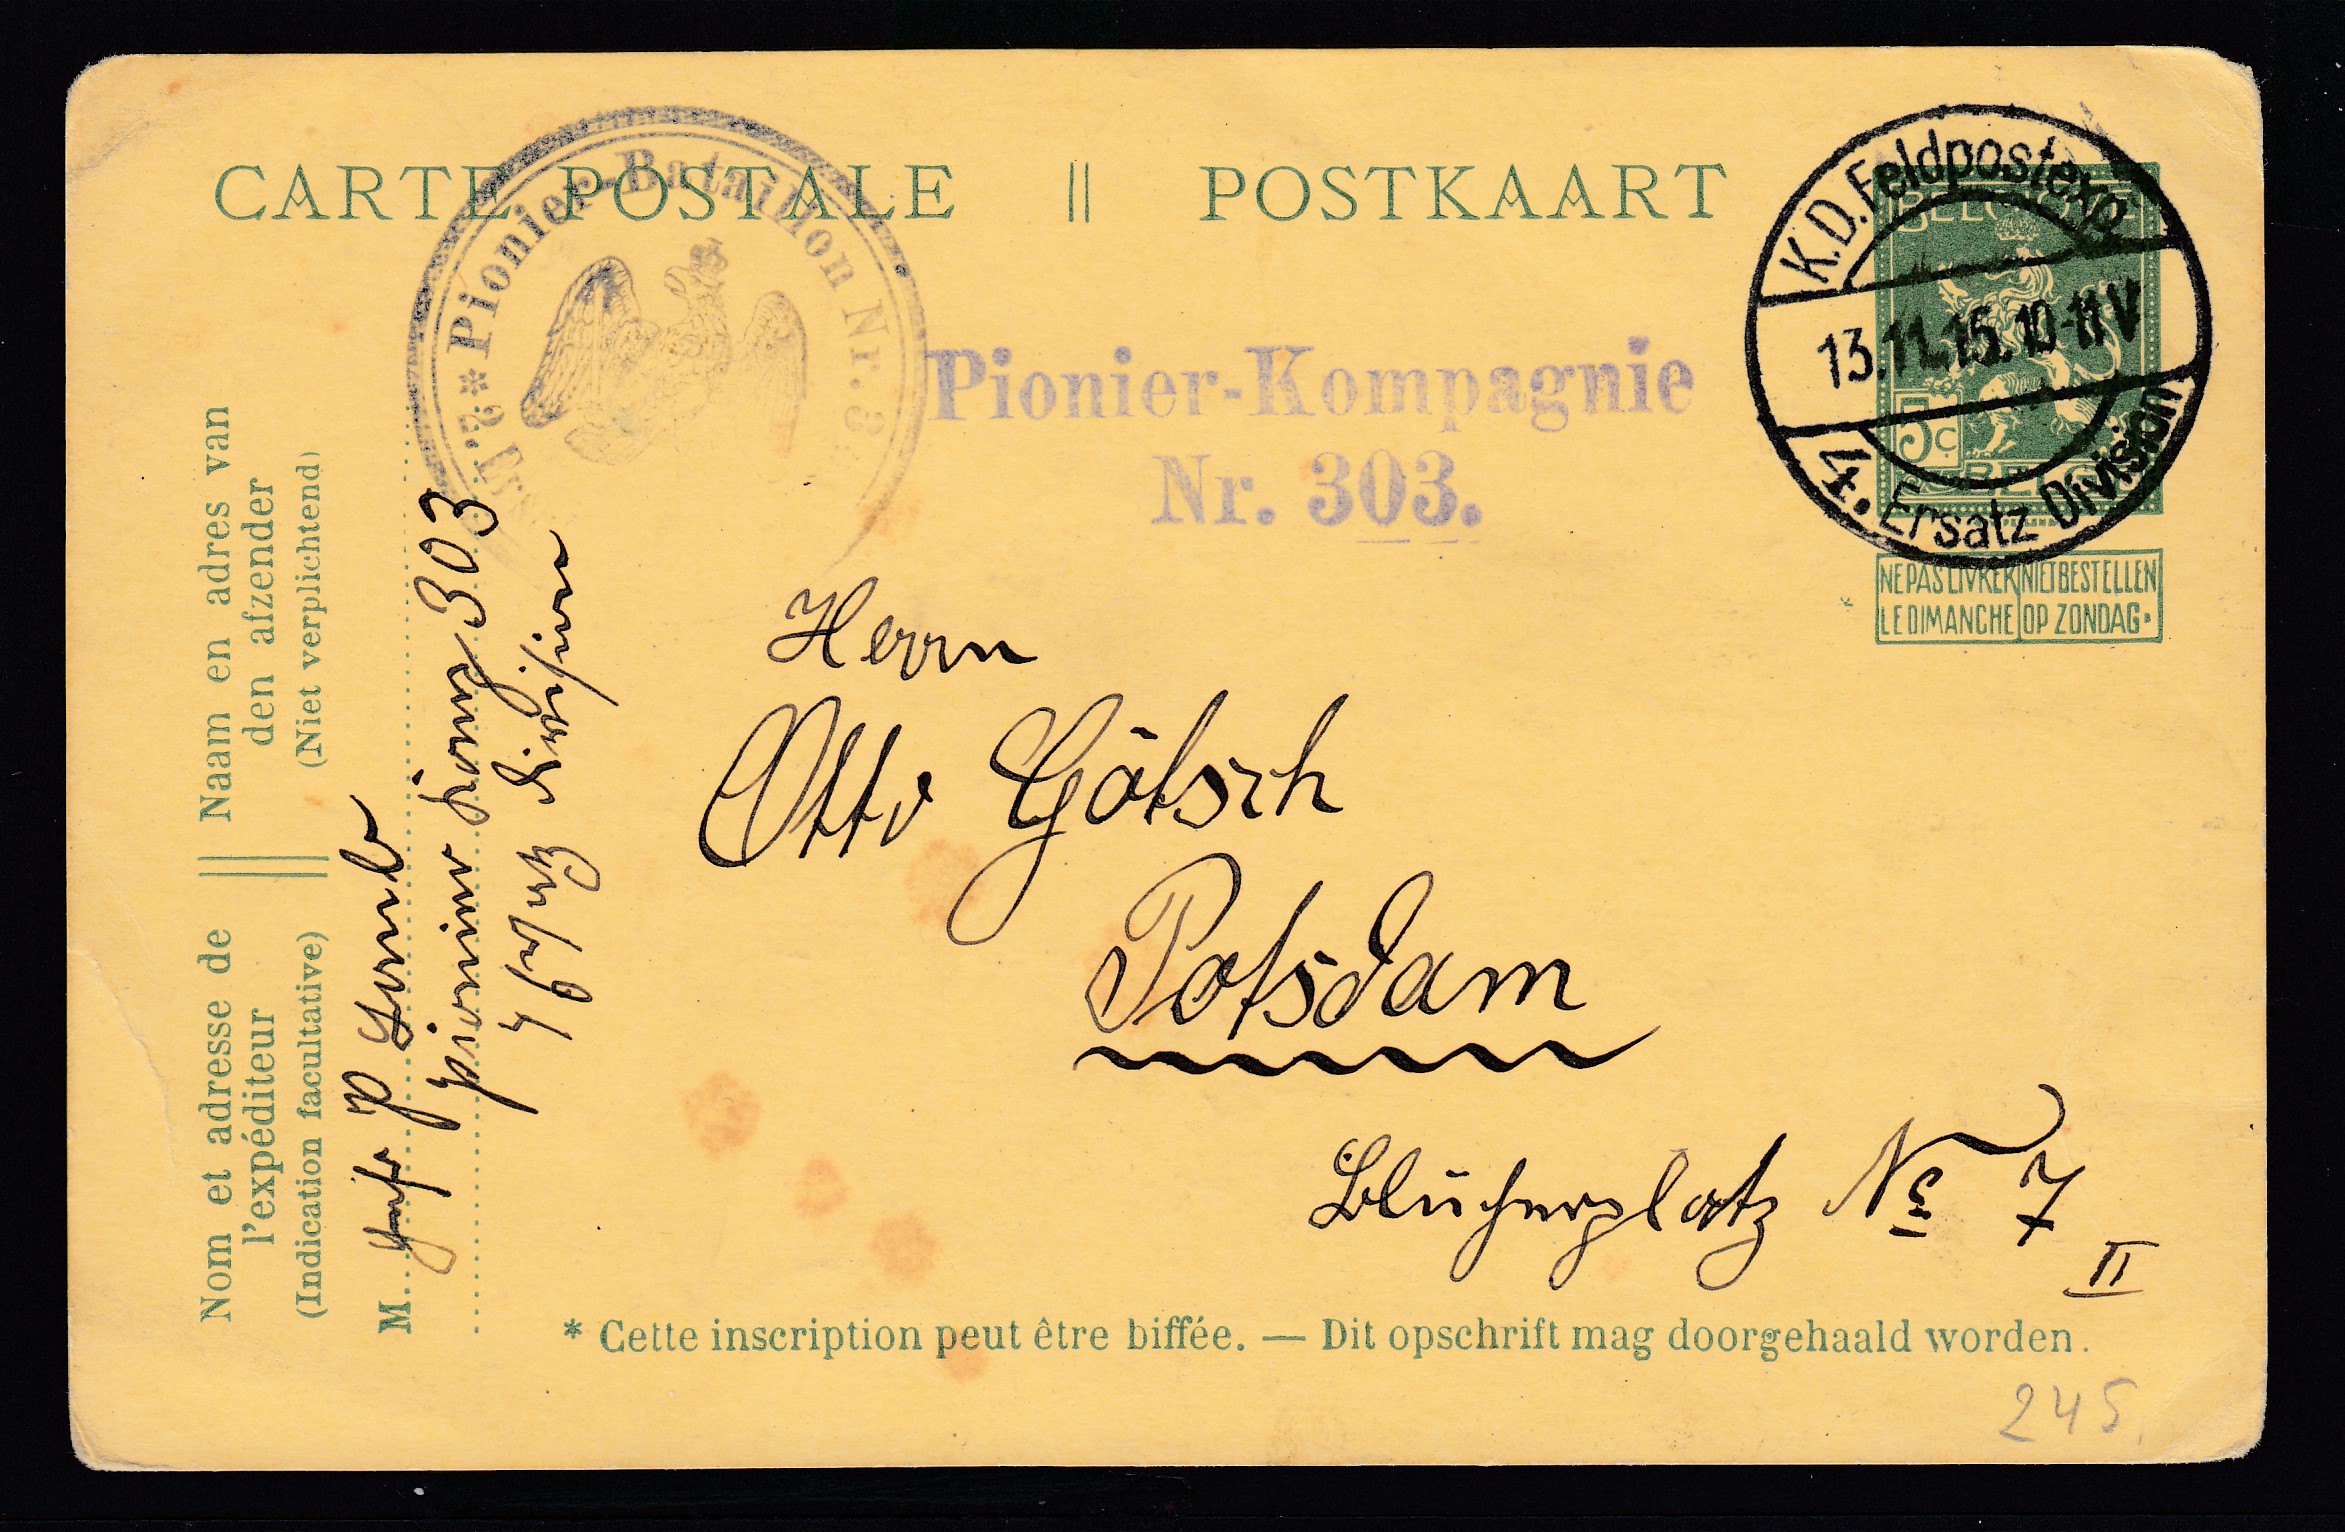 CARTE POSTALE || POSTKAART
Pionier-Bataillon Nr. 3
Pionier-Kompagnie
Nr. 303.
K.D.Feldpostexp.
13.11.15.10-11V
4. Ersatz Division
BELGIQUE
5c
BELGIË
NE PAS LIVRER LE DIMANCHE
NIET BESTELLEN OP ZONDAG.
*
Naam en adres van
den afzender
(Niet verplichtend)
Nom et adresse de
l'expéditeur
(Indication facultative)
M.
Pionier Komp 303
4 Ersatz Division
Herrn
Otto Götsch
Potsdam
Blücherplatz No 7
II
* Cette inscription peut être biffée. — Dit opschrift mag doorgehaald worden.
245